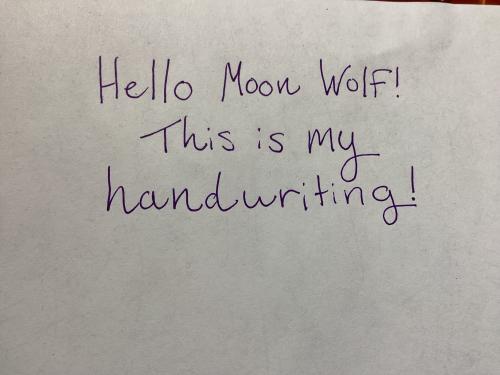 Hello Moon Wolf!
This is my
handwriting!